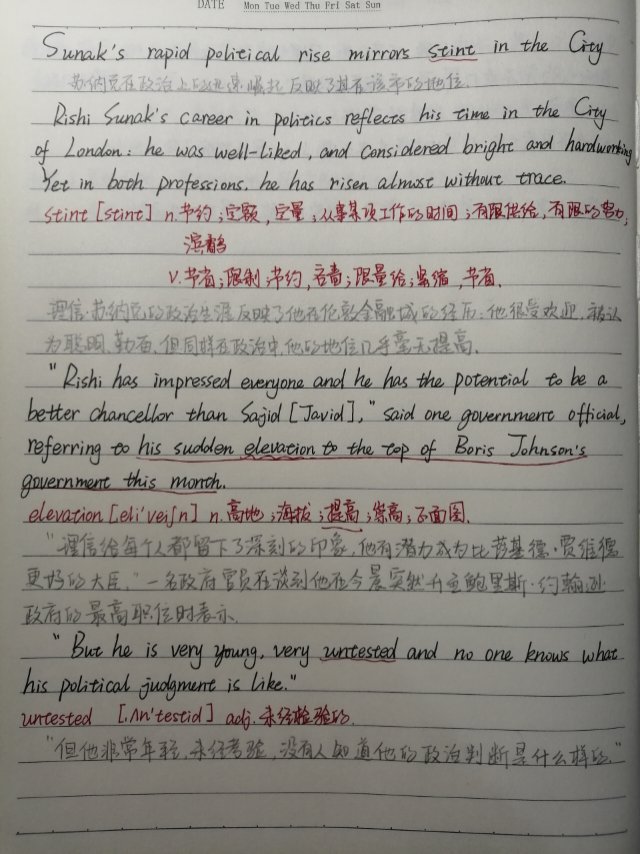 DATE Mon Tue Wed Thu Fri Sat Sun
Sunak's rapid political rise mirrors stint in the City
苏纳克在政治上的迅速崛起反映了其在该市的地位.
Rishi Sunak's career in politics reflects his time in the City
of London: he was well-liked, and considered bright and hardworking
Yet in both professions, he has risen almost without trace.
stint [stint] n.节约;定额,定量;从事某项工作的时间;有限供给,有限的努力;
滨鹬
v.节省;限制;节约,吝啬;限量给;紧缩,节省.
理信·苏纳克的政治生涯反映了他在伦敦金融城的经历:他很受欢迎,被认
为聪明,勤奋,但同样在政治中,他的地位几乎毫无提高.
"Rishi has impressed everyone and he has the potential to be a
better chancellor than Sajid [Javid]," said one government official,
referring to his sudden elevation to the top of Boris Johnson's
government this month.
elevation [eli'veiʃn] n.高地;海拔;提高;崇高;正面图.
"理信给每个人都留下了深刻的印象,他有潜力成为比萨基德·贾维德
更好的大臣."一名政府官员在谈到他在今晨突然升至鲍里斯·约翰逊
政府的最高职位时表示.
"But he is very young, very untested and no one knows what
his political judgment is like."
untested [ʌn'testid] adj.未经检验的.
"但他非常年轻,未经考验,没有人知道他的政治判断是什么样的."